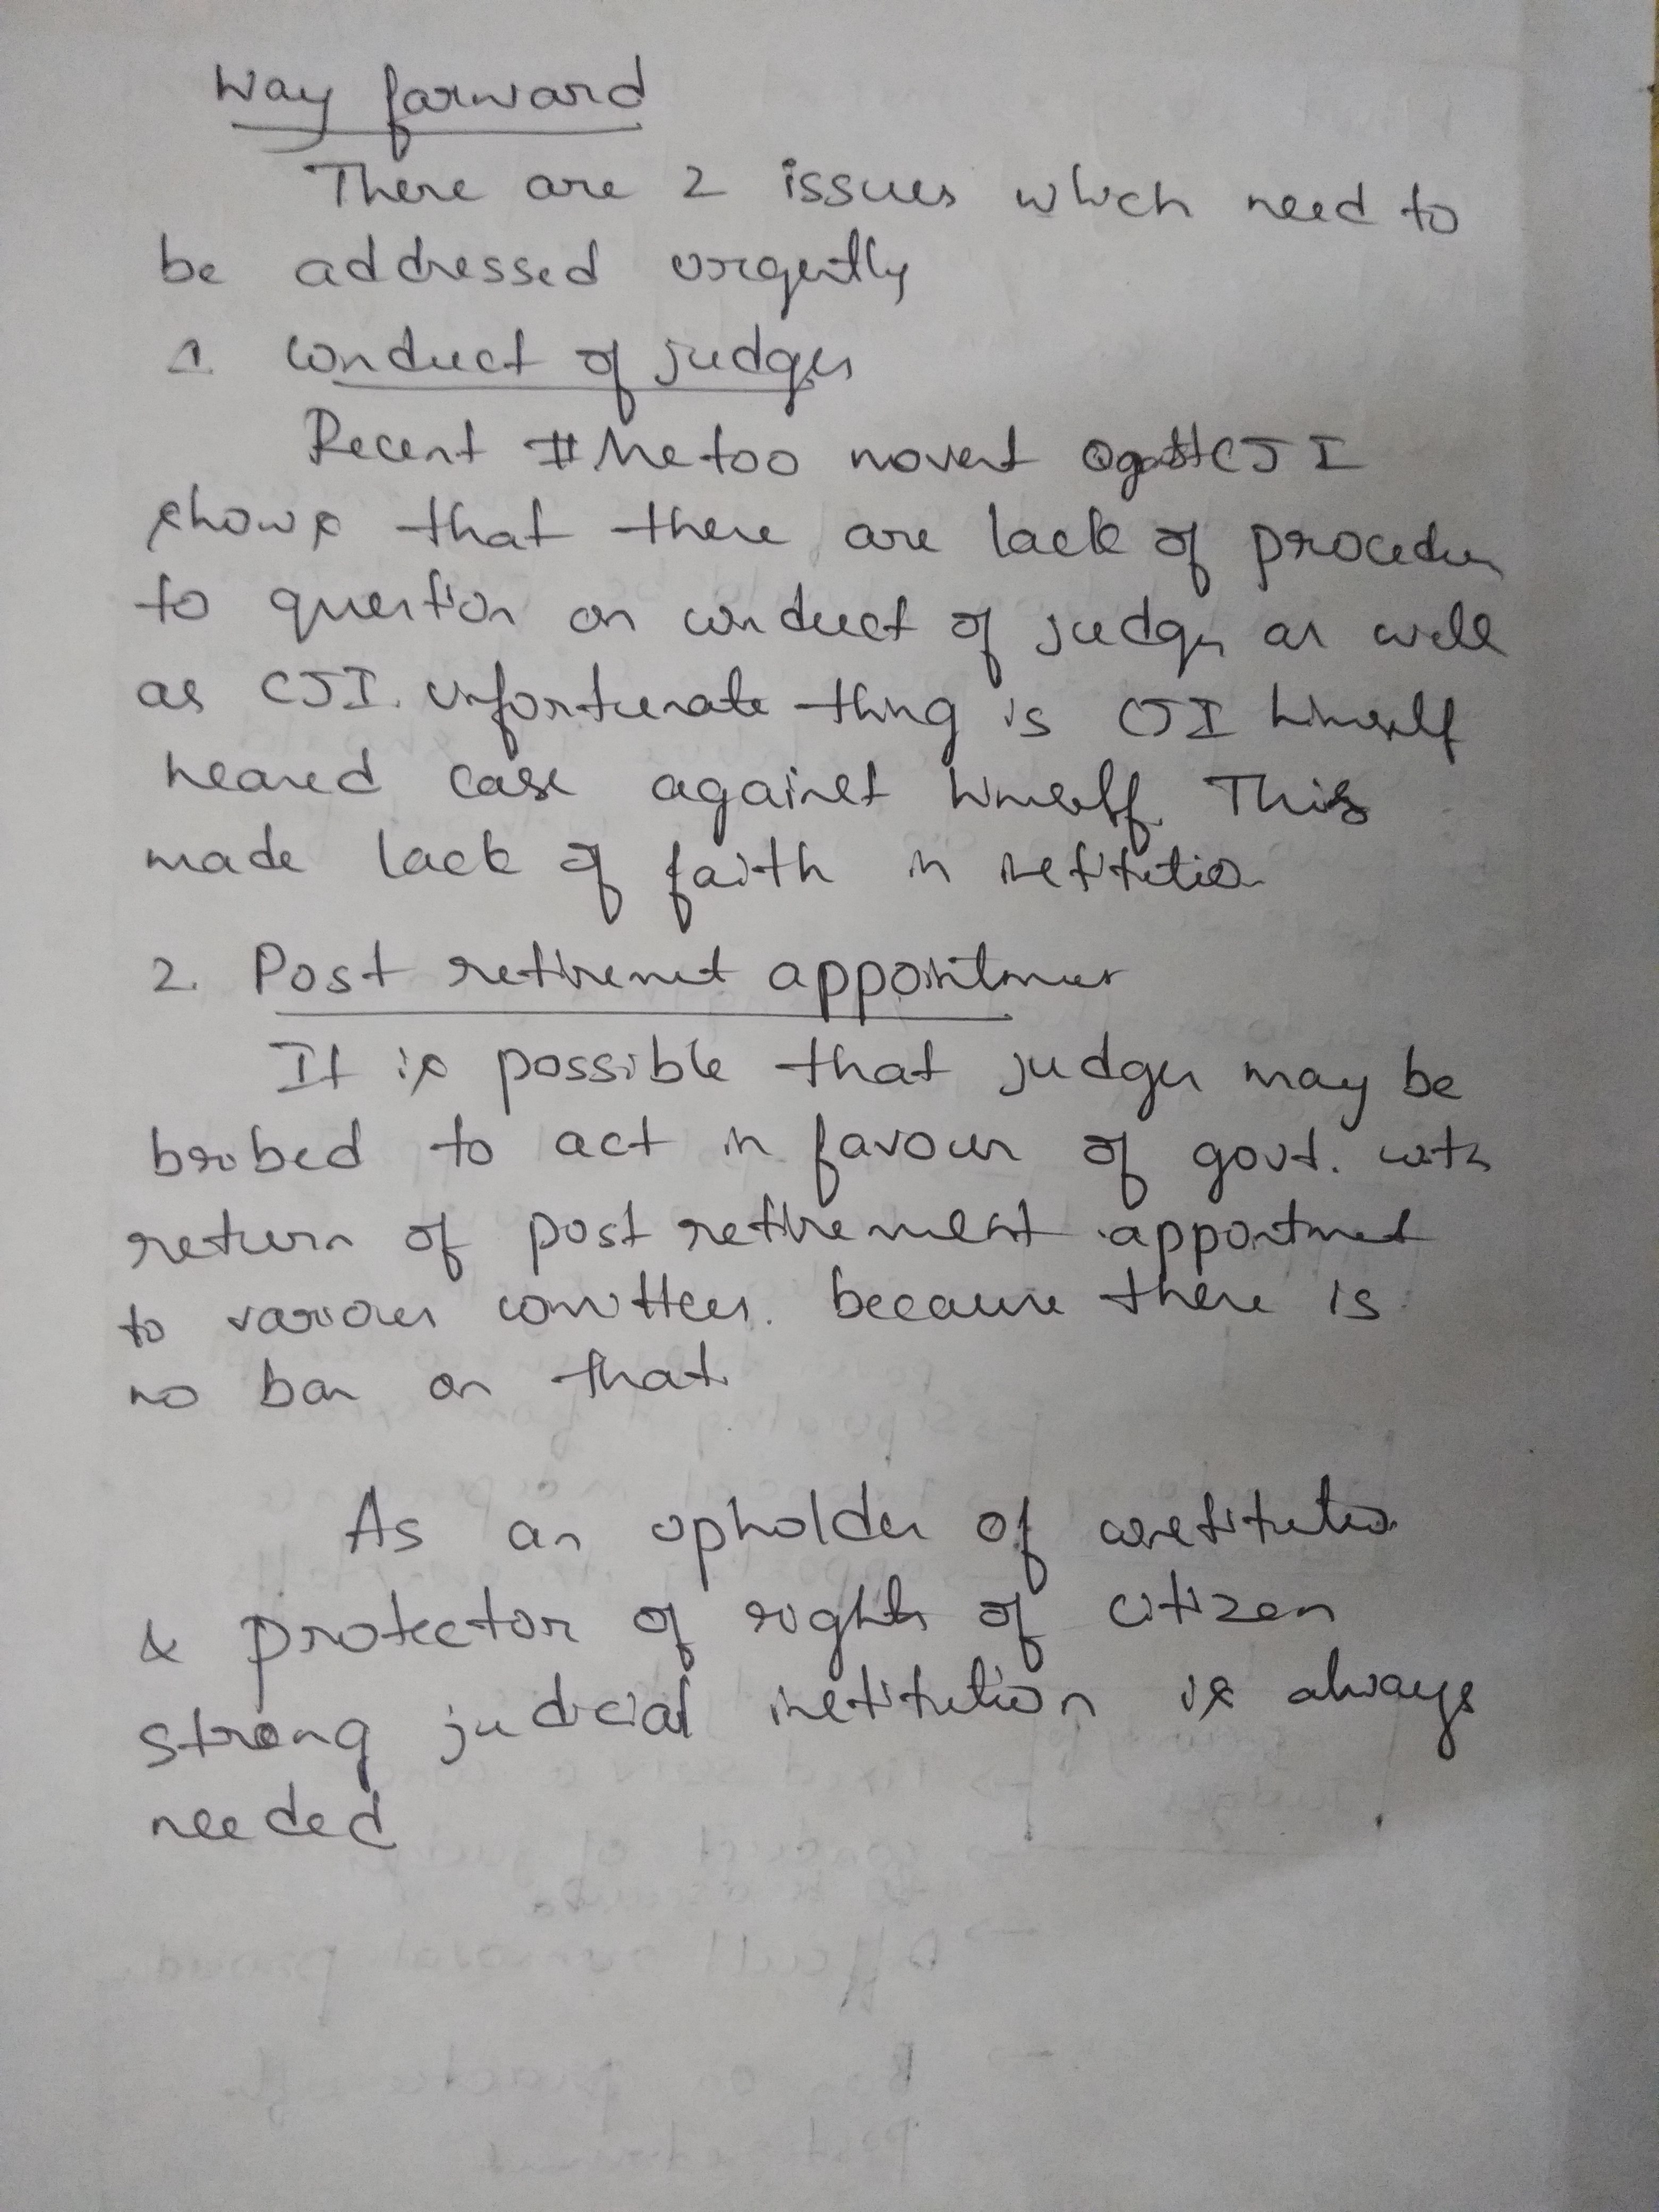 Way forward
There are 2 issues which need to
be addressed urgently
1. Conduct of judges
Recent #Metoo movent against CJI
shows that there are lack of procedur
to question on conduct of judges as well
as CJI. Unfortunate thing is CJI himself
heared case against himself. This
made lack of faith in institution
2. Post retirement appointmen
It is possible that judges may be
bribed to act in favour of govt. with
return of post retirement appointment
to various committees. because there is
no bar on that.
As an upholder of constitution
& protector of rights of citizen
strong judicial institution is always
needed